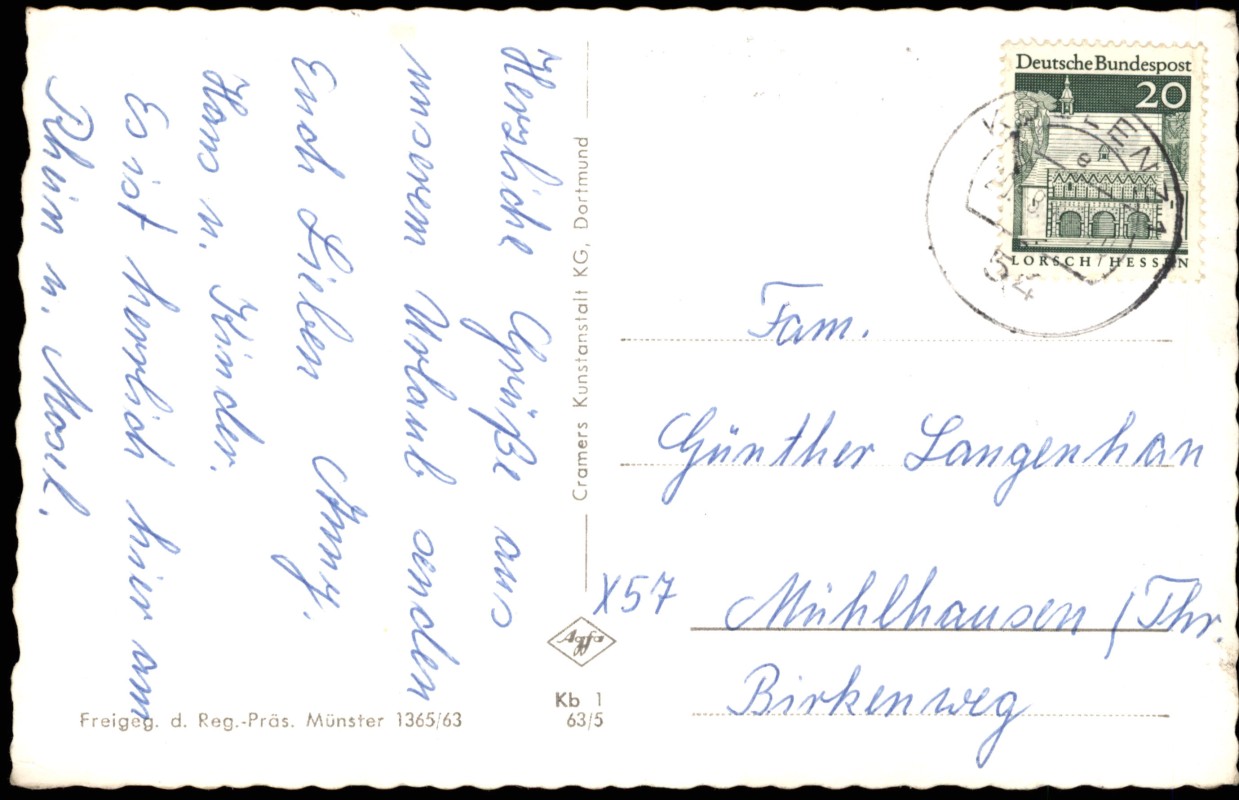 Herzliche Grüße aus
unserem Urlaub senden
Euch Lieben Anny,
Hans u. Kinder.
Es ist herrlich hier am
Rhein u. Mosel.
Cramers Kunstanstalt KG, Dortmund
Agfa
Kb 1
63/5
Freigeg. d. Reg.-Präs. Münster 1365/63
Deutsche Bundespost
20
LORSCH/HESSEN
54
Fam.
Günther Langenhan
X57 Mühlhausen/Thr.
Birkenweg